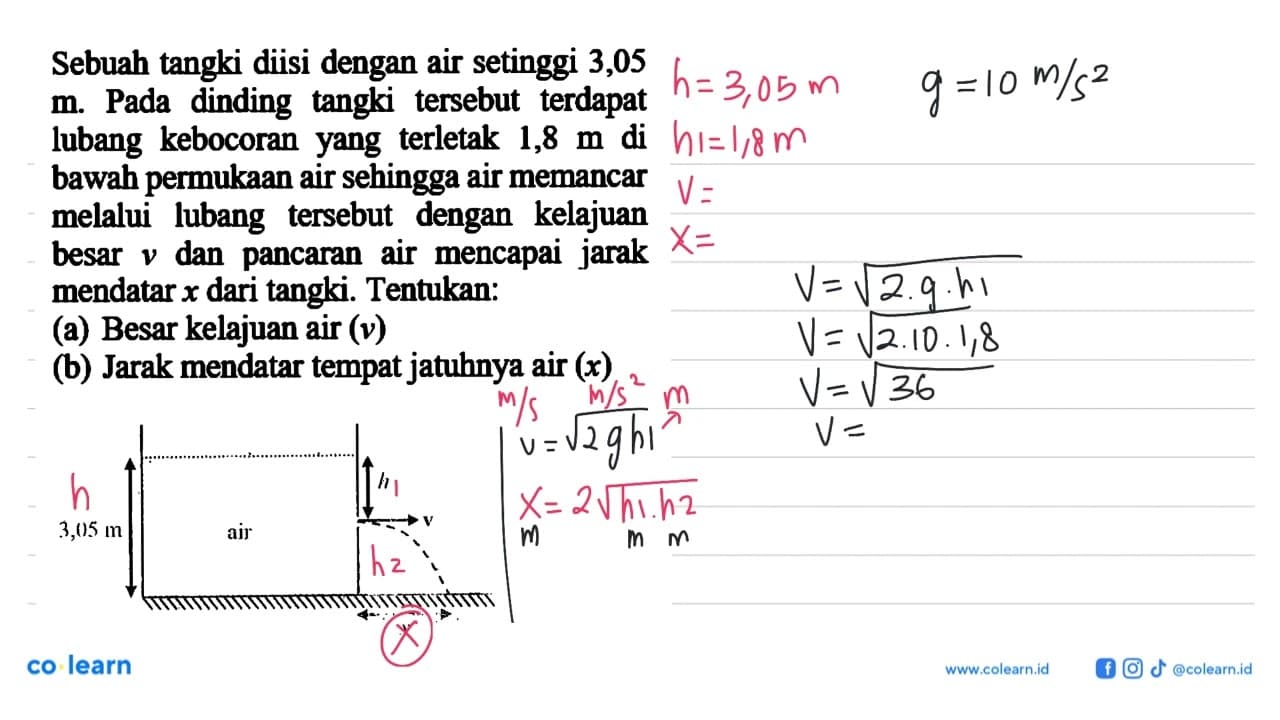 Sebuah tangki diisi dengan air setinggi 3,05
m. Pada dinding tangki tersebut terdapat
lubang kebocoran yang terletak 1,8 m di
bawah permukaan air sehingga air memancar
melalui lubang tersebut dengan kelajuan
besar v dan pancaran air mencapai jarak
mendatar x dari tangki. Tentukan:
(a) Besar kelajuan air (v)
(b) Jarak mendatar tempat jatuhnya air (x)
h = 3,05 m
h1 = 1,8 m
V =
X =
g = 10 m/s²
V = √2.g.h1
V = √2.10.1,8
V = √36
V =
m/s m/s² m
v = √2gh1
X = 2√h1.h2
m m m
h
3,05 m
air
h1
v
h2
X
co learn
www.colearn.id
@colearn.id